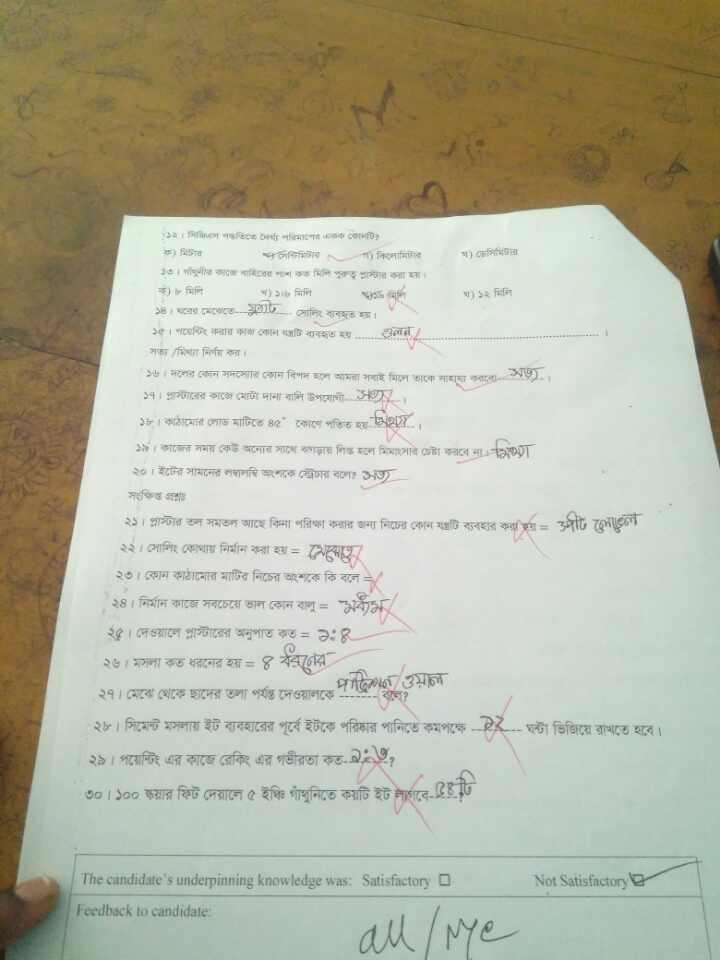 ১২। সিজিএস পদ্ধতিতে দৈর্ঘ্য পরিমাপের একক কোনটি?
ক) মিটার খ) সেন্টিমিটার গ) কিলোমিটার ঘ) ডেসিমিটার
১৩। গাঁথুনীর কাজে বাহিরের পাশ কত মিলি পুরুত্ব প্লাস্টার করা হয়।
ক) ৮ মিলি খ) ১০ মিলি মিলি ঘ) ১২ মিলি
১৪। ঘরের মেঝেতে সোলিং ব্যবহৃত হয়।
১৫। পয়েন্টিং করার কাজ কোন যন্ত্রটি ব্যবহৃত হয় ওলন ।
সত্য /মিথ্যা নির্ণয় কর।
১৬। দলের কোন সদস্যের কোন বিপদ হলে আমরা সবাই মিলে তাকে সাহায্য করবো সত্য ।
১৭। প্লাস্টারের কাজে মোটা দানা বালি উপযোগী সত্য ।
১৮। কাঠামোর লোড মাটিতে ৪৫° কোণে পতিত হয় মিথ্যা ।
১৯। কাজের সময় কেউ অন্যের সাথে ঝগড়ায় লিপ্ত হলে মিমাংসার চেষ্টা করবে না। মিথ্যা
২০। ইটের সামনের লম্বালম্বি অংশকে স্ট্রেচার বলে? সত্য
সংক্ষিপ্ত প্রশ্নঃ
২১। প্লাস্টার তল সমতল আছে কিনা পরিক্ষা করার জন্য নিচের কোন যন্ত্রটি ব্যবহার করা হয় = স্পীট লেভেল
২২। সোলিং কোথায় নির্মান করা হয় = মেঝেতে
২৩। কোন কাঠামোর মাটির নিচের অংশকে কি বলে =
২৪। নির্মান কাজে সবচেয়ে ভাল কোন বালু = মধ্যম
২৫। দেওয়ালে প্লাস্টারের অনুপাত কত = ১:৪
২৬। মসলা কত ধরনের হয় = ৪ ধরনের
পার্টিশন ওয়াল
২৭। মেঝে থেকে ছাদের তলা পর্যন্ত দেওয়ালকে -------- বলে?
২৮। সিমেন্ট মসলায় ইট ব্যবহারের পূর্বে ইটকে পরিষ্কার পানিতে কমপক্ষে --১২---- ঘন্টা ভিজিয়ে রাখতে হবে।
২৯। পয়েন্টিং এর কাজে রেকিং এর গভীরতা কত ১:৩?
৩০। ১০০ স্কয়ার ফিট দেয়ালে ৫ ইঞ্চি গাঁথুনিতে কয়টি ইট লাগবে ৫৪টি?
The candidate's underpinning knowledge was: Satisfactory ☐ Not Satisfactory ☑
Feedback to candidate:
all / NYC